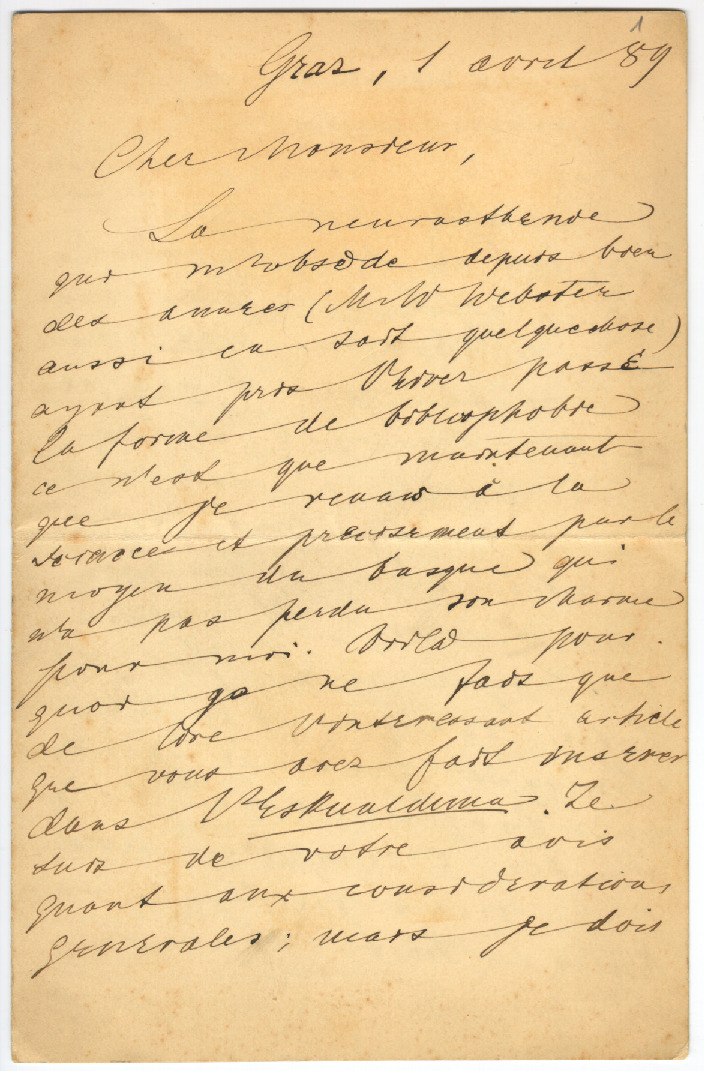 Graz, 1 avril 89
Cher Monsieur,
La neurasthenie
qui m'obsède depuis bien
des annees (M. W Webster
aussi en sait quelquechose)
ayant pris l'hiver passé
la forme de bibliophobie
ce n'est que maintenant
que je reviens à la
et precisement par le
moyen du basque qui
n'a pas perdu son charme
pour moi. Voilà pour
quoi je ne fais que
de lire l'interessant article
que vous avez fait inserer
dans l'Eskualduna. Je
suis de votre avis
quant aux considerations
generales; mais je dois